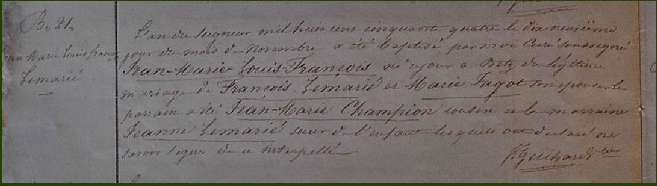 B. 21.
Jean Marie Louis François
Lemarié
L'an du Seigneur mil huit cent cinquante quatre le dix-neuvième
jour du mois de Novembre a été baptisé par moi soussigné
Jean-Marie-Louis-François né ce jour à du légitime
mariage de François Lemarié et Marie Jagot
parrain a été Jean-Marie Champion cousin et la marraine
Jeanne Lemarié sœur de l'enfant lesquels ont déclaré ne
savoir signer de ce interpellés
J. Guihard